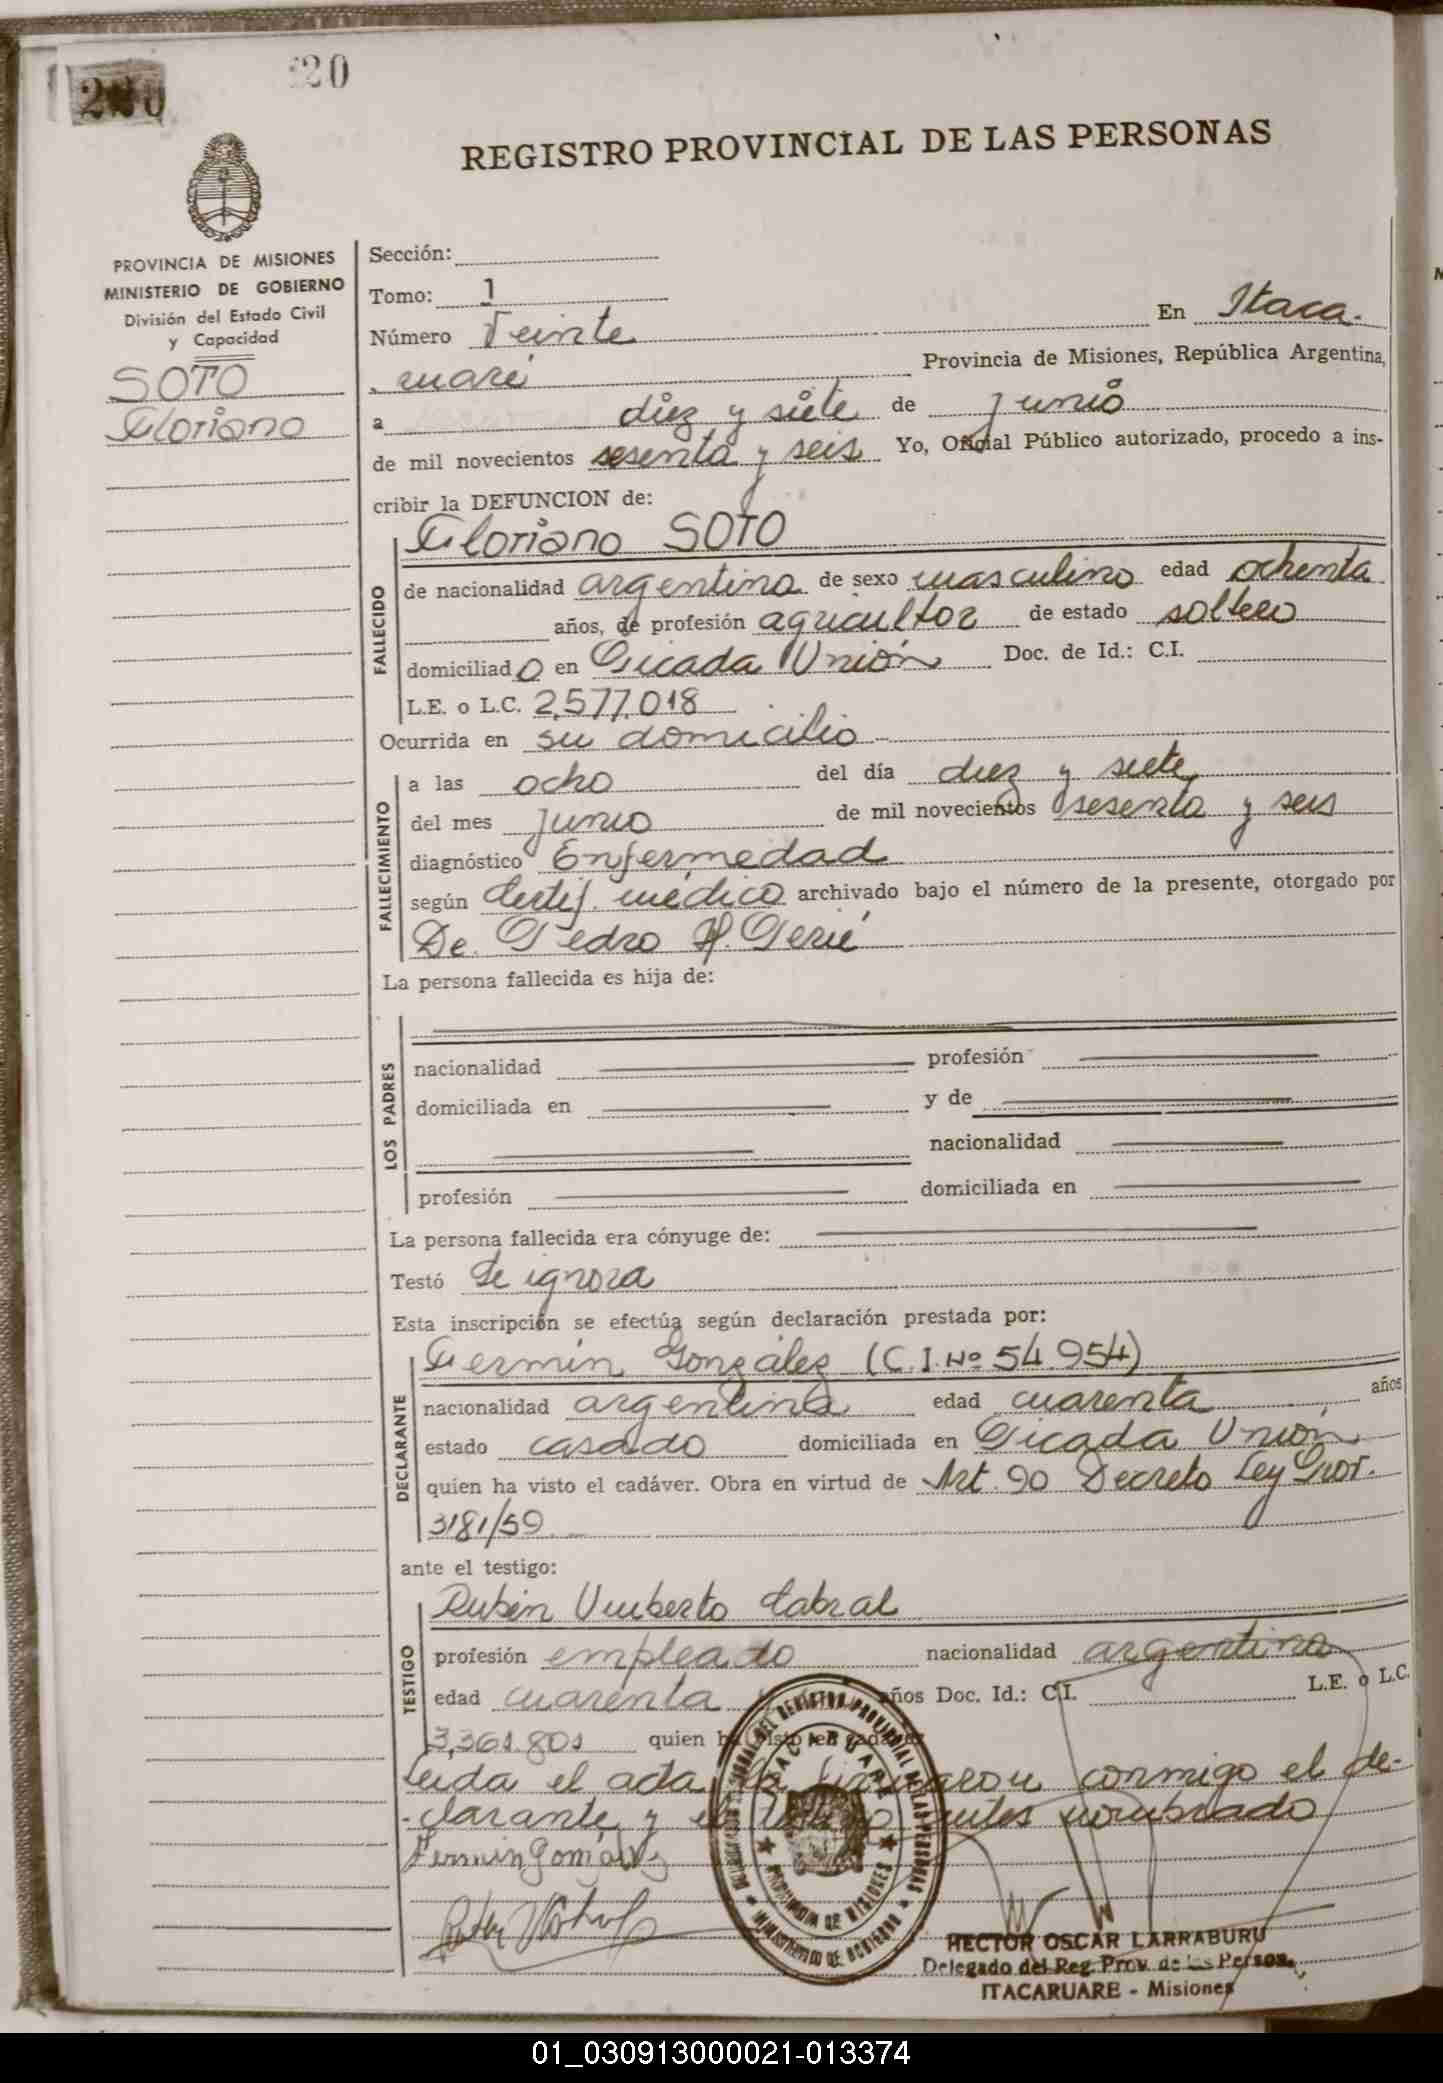 20
REGISTRO PROVINCIAL DE LAS PERSONAS
PROVINCIA DE MISIONES
MINISTERIO DE GOBIERNO
División del Estado Civil
y Capacidad
SOTO
Floriano
Sección:
Tomo: 1
Número Veinte En Itaca-
ruaré Provincia de Misiones, República Argentina,
a diez y siete de junio
de mil novecientos sesenta y seis Yo, Oficial Público autorizado, procedo a ins-
cribir la DEFUNCION de:
Floriano SOTO
FALLECIDO
de nacionalidad argentina de sexo masculino edad ochenta
años, de profesión agricultor de estado soltero
domiciliado en Picada Unión Doc. de Id.: C.I.
L.E. o L.C. 2,577,018
Ocurrida en su domicilio
FALLECIMIENTO
a las ocho del día diez y siete
del mes junio de mil novecientos sesenta y seis
diagnóstico Enfermedad
según Certif. médico archivado bajo el número de la presente, otorgado por
Dr. Pedro H. Perié
La persona fallecida es hija de:
LOS PADRES
nacionalidad profesión
domiciliada en y de
nacionalidad
profesión domiciliada en
La persona fallecida era cónyuge de:
Testó Se ignora
Esta inscripción se efectúa según declaración prestada por:
DECLARANTE
Fermín González (C.I. Nº 54.954)
nacionalidad argentina edad cuarenta años
estado casado domiciliada en Picada Unión
quien ha visto el cadáver. Obra en virtud de Art. 90 Decreto Ley Prov.
3181/59
ante el testigo:
TESTIGO
Rubén Umberto Cabral
profesión empleado nacionalidad argentina
edad cuarenta años Doc. Id.: C.I. L.E. o L.C.
3,361.801 quien ha visto el cadáver
Leida el acta la firmaron conmigo el de-
clarante y el testigo antes nombrado
Fermin Gonzalez
ITACARUARE
PROVINCIA DE MISIONES
MINISTERIO DE GOBIERNO
HECTOR OSCAR LARRABURU
Delegado del Reg. Prov. de las Personas
ITACARUARE - Misiones
01_030913000021-013374